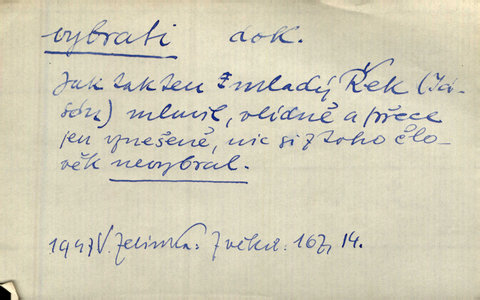 vybrati dok.
Jak tak ten mladý Řek (Já-
són) mluvil, vlídně a přece
jen vznešeně, nic si z toho člo-
věk nevybral.
1947 V. Jelínka: 167, 14.